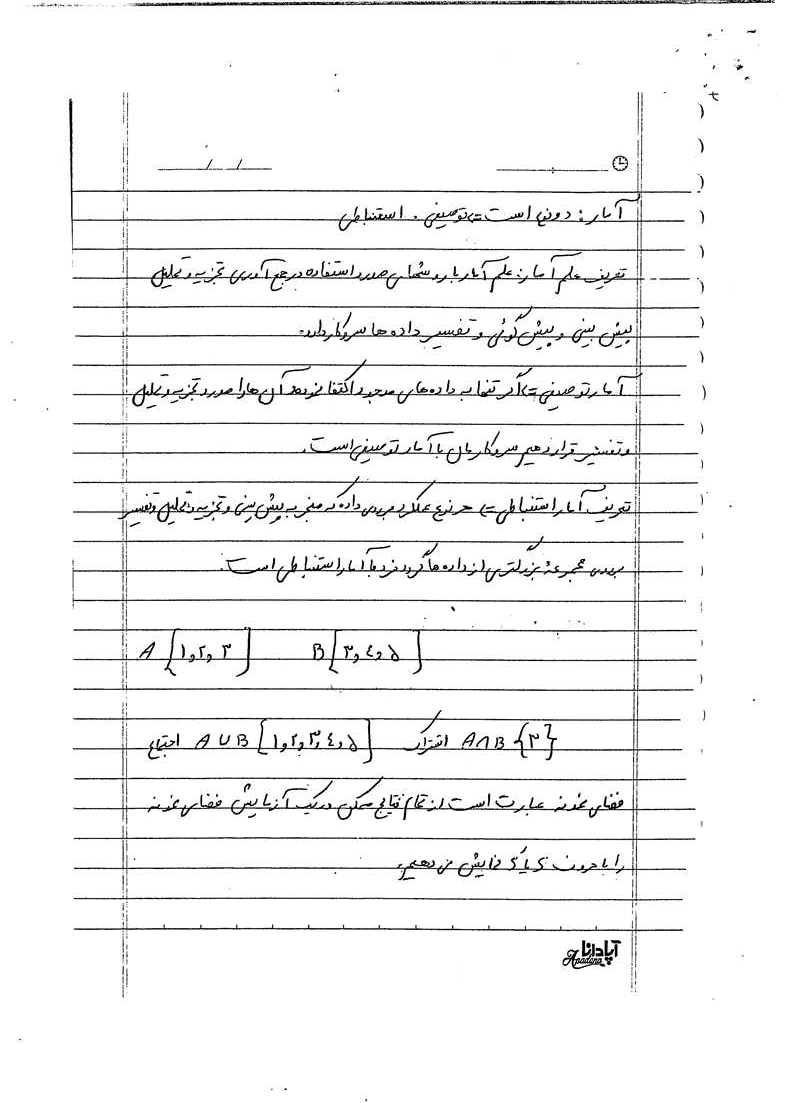 آمار: دو نوع است => توصیفی . استنباطی
تعریف علم آمار: علم آمار با روشهای مورد استفاده در جمع آوری تجزیه و تحلیل
پیش بینی و پیش گوئی و تفسیر داده ها سروکار دارد.
آمار توصیفی => اگر تنها به داده های موجود اکتفا نموده آن ها را مورد تجزیه و تحلیل
و تفسیر قرار دهیم سروکارمان با آمار توصیفی است.
تعریف آمار استنباطی => هر نوع عملکرد بر روی داده که منجر به پیش بینی و تجزیه و تحلیل و تفسیر
بر روی مجموعهٔ بزرگتری از داده ها گردد فرد با آمار استنباطی است.
A [۱,۲,۳] B [۳,٤,۵]
A U B [۱,۲,۳,٤,۵] اجتماع A∩B {۳} اشتراک
فضای نمونه عبارت است از تمام نتایج ممکن در یک آزمایش فضای نمونه
را با حروف S یا نمایش می دهیم.
آپادانا
Apadana